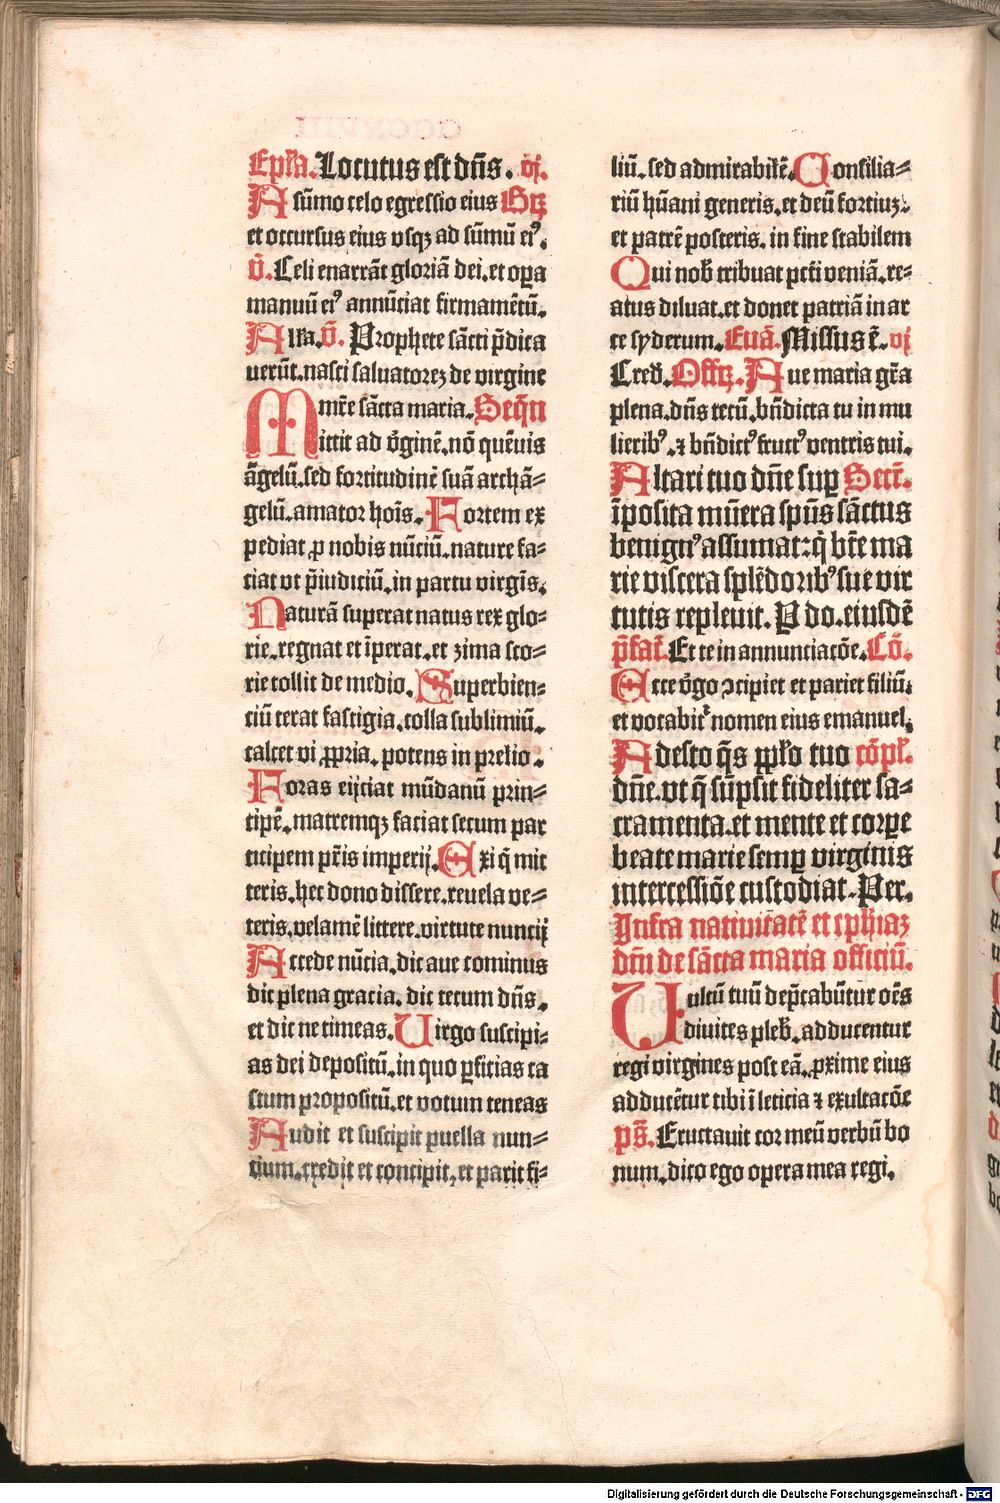 Epl̃a. Locutus est dñs. vj.
A sũmo celo egressio eius Grꝫ
et occursus eius vsqꝫ ad sũmũ eiꝰ.
v̄. Celi enarrãt gloriã dei. et opa
manuũ eiꝰ annũciat firmamẽtũ.
Alła. v̄. Prophete sãcti p̃dica
uerũt. nasci saluatoreꝫ de virgine
Imr̃e sãcta maria. Seq̃n
Mittit ad v̄ginẽ. nõ quẽuis
ãgelũ. sed fortitudinẽ suã archã⸗
gelũ. amator hoĩs. Fortem ex
pediat ꝓ nobis nũciũ. nature fa⸗
ciat vt p̃iudiciũ. in partu virgĩs.
Naturã superat natus rex glo⸗
rie. regnat et ĩperat. et zima sco⸗
rie tollit de medio. Superbien⸗
ciũ terat fastigia. colla sublimiũ.
calcet vi ꝓpria. potens in prelio.
Foras eijciat mũdanũ prin⸗
cipẽ. matremqꝫ faciat secum par
ticipem pr̃is imperij. Exi q̃ mit
teris. hec dono dissere. reuela ve⸗
teris. velamẽ littere. virtute nuncij
Accede nũcia. dic aue cominus
dic plena gracia. dic tecum dñs.
et dic ne timeas. Uirgo suscipi⸗
as dei depositũ. in quo ꝑficias ca
stum propositũ. et votum teneas
Audit et suscipit puella nun⸗
cium. credit et concipit. et parit fi⸗
liũ. sed admirabilẽ. Consilia⸗
riũ hũani generis. et deũ fortiuꝫ.
et patrẽ posteris. in fine stabilem
Qui nob̃ tribuat pcti veniã. re⸗
atus diluat. et donet patriã in ar
ce syderum. Euã. Missus ẽ. vj
Cred̃. Offrꝫ. Aue maria gr̃a
plena. dñs tecũ. bñdicta tu in mu
lieribꝰ. ⁊ bñdictꝰ fructꝰ ventris tui.
Altari tuo dñe suꝑ Secr̃.
ĩposita mũera spũs sãctus
benignꝰ assumat: q̃ bt̃e ma
rie viscera splẽdoribꝰ sue vir
tutis repleuit. P do. eiusdẽ
p̃fat̃. Et te in annunciacõe. Cõ.
Ecce v̄go ↄcipiet et pariet filiũ.
et vocabit̃ nomen eius emanuel.
Adesto q̃s ppl̃o tuo cõpl̃.
dñe. vt q̃ sũpsit fideliter sa⸗
cramenta. et mente et corꝑe
beate marie semꝑ virginis
intercessiõe custodiat. Per.
Infra natiuitatẽ et epħiaꝫ
dñi de sãcta maria officiũ.
Uultũ tuũ dep̃cabũtur oẽs
diuites pleb̃. adducentur
regi virgines post eã. ꝓxime eius
adducẽtur tibi ĩ leticia ⁊ exultacõe
ps̃. Eructauit cor meũ verbũ bo
num. dico ego opera mea regi.
Digitalisierung gefördert durch die Deutsche Forschungsgemeinschaft - DFG